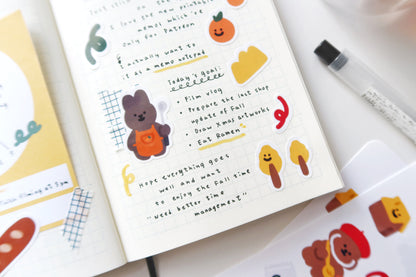 I love the new printable
memos which're
only for Patreon
I actually want to
use it as a memo notepad
Today's Goal:
• Film vlog
• Prepare the last shop
update of Fall
• Draw Xmas artworks
• Eat Ramen
Hope everything goes
well and want
to enjoy the Fall time
"need better time
management"